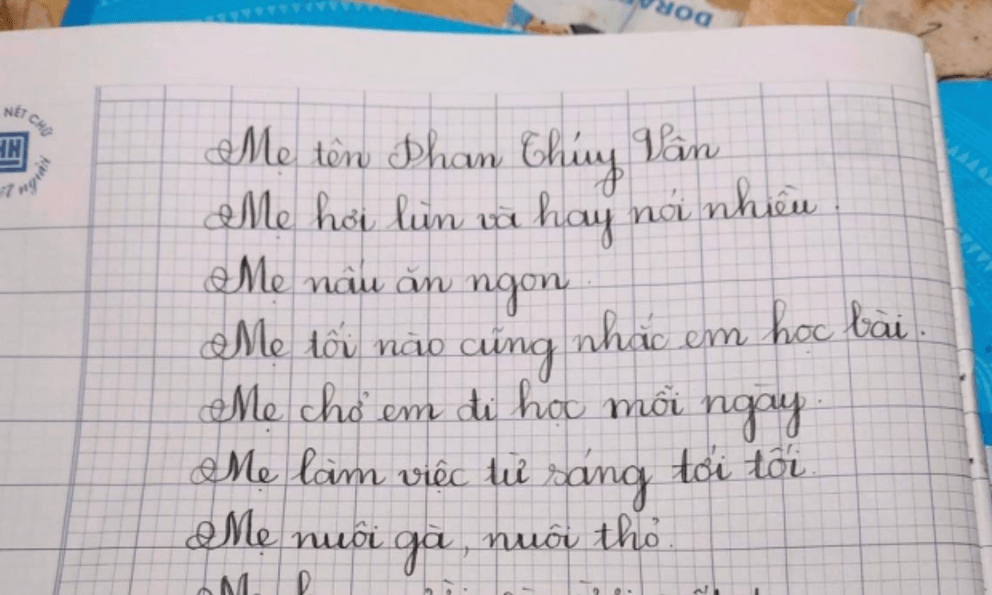 DORA
NÉT CHỮ
HH
Mẹ tên Phan Thúy Vân
Mẹ hơi lùn và hay nói nhiều.
Mẹ nấu ăn ngon.
Mẹ tối nào cũng nhắc em học bài.
Mẹ chở em đi học mỗi ngày.
Mẹ làm việc từ sáng tới tối.
Mẹ nuôi gà, nuôi thỏ.
Mẹ